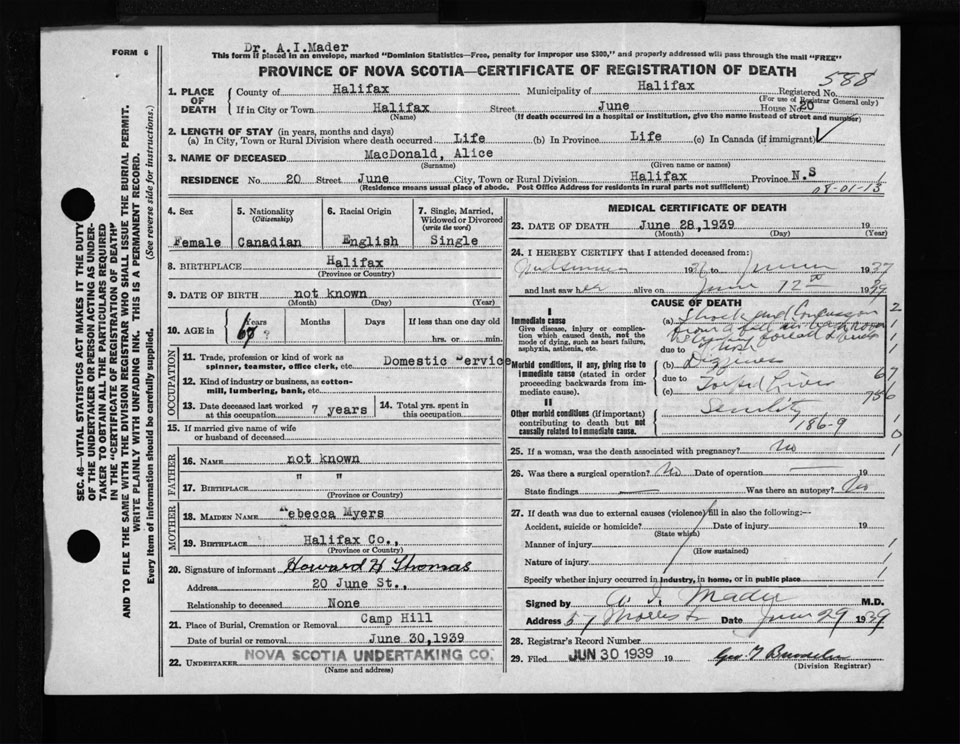 FORM 6
Dr. A.I.Mader
This form if placed in an envelope, marked "Dominion Statistics—Free, penalty for improper use $300," and properly addressed will pass through the mail "FREE"
PROVINCE OF NOVA SCOTIA—CERTIFICATE OF REGISTRATION OF DEATH
588
1. PLACE OF DEATH County of Halifax Municipality of Halifax Registered No.
(For use of Registrar General only)
If in City or Town Halifax Street June House No. 20
(Name) (If death occurred in a hospital or institution, give the name instead of street and number)
2. LENGTH OF STAY (in years, months and days)
(a) In City, Town or Rural Division where death occurred Life (b) In Province Life (c) In Canada (if immigrant)
3. NAME OF DECEASED MacDonald, Alice
(Surname) (Given name or names)
RESIDENCE No. 20 Street June City, Town or Rural Division Halifax Province N.S
(Residence means usual place of abode. Post Office Address for residents in rural parts not sufficient)
08-01-13
4. Sex 5. Nationality (Citizenship) 6. Racial Origin 7. Single, Married, Widowed or Divorced (write the word)
Female Canadian English Single
8. BIRTHPLACE Halifax
(Province or County)
9. DATE OF BIRTH not known
(Month) (Day) (Year)
10. AGE in Years Months Days If less than one day
hrs. or min.
OCCUPATION
11. Trade, profession or kind of work as spinner, teamster, office clerk, etc. Domestic Service
12. Kind of industry or business, as cotton-mill, lumbering, bank, etc.
13. Date deceased last worked at this occupation 7 years 14. Total yrs. spent in this occupation
15. If married give name of wife or husband of deceased
FATHER
16. Name not known
17. Birthplace " "
(Province or County)
MOTHER
18. Maiden Name Rebecca Myers
19. Birthplace Halifax Co.,
(Province or County)
20. Signature of informant Howard H Thomas
Address 20 June St.,
Relationship to deceased None
21. Place of Burial, Cremation or Removal Camp Hill
Date of burial or removal June 30,1939
22. Undertaker NOVA SCOTIA UNDERTAKING CO.
(Name and address)
MEDICAL CERTIFICATE OF DEATH
23. DATE OF DEATH June 28,1939 19
(Month) (Day) (Year)
24. I HEREBY CERTIFY that I attended deceased from:
19 to June 1937
and last saw her alive on June 12th 1939
CAUSE OF DEATH
I
Immediate cause (a) Shock and Concussion
Give disease, injury or complication which caused death, not the mode of dying, such as heart failure, asphyxia, asthenia, etc.
from a fall
due to
Morbid conditions, if any, giving rise to immediate cause (stated in order proceeding backwards from immediate cause). (b) Dizziness
due to
(c) Torpid Liver
II
Other morbid conditions (if important) contributing to death but not causally related to immediate cause. Senility
186-9
25. If a woman, was the death associated with pregnancy? No
26. Was there a surgical operation? No Date of operation — 19
State findings — Was there an autopsy? No
27. If death was due to external causes (violence) fill in also the following:—
Accident, suicide or homicide? Date of injury 19
(State which)
Manner of injury
(How sustained)
Nature of injury
Specify whether injury occurred in industry, in home, or in public place
Signed by A. I. Mader M.D.
Address 57 Morris St Date June 29 1939
28. Registrar's Record Number
29. Filed JUN 30 1939 19
(Division Registrar)
SEC. 46—VITAL STATISTICS ACT MAKES IT THE DUTY
OF THE UNDERTAKER OR PERSON ACTING AS UNDER-
TAKER TO OBTAIN ALL THE PARTICULARS REQUIRED
IN THE "CERTIFICATE OF REGISTRATION OF DEATH"
AND TO FILE THE SAME WITH THE DIVISION REGISTRAR WHO SHALL ISSUE THE BURIAL PERMIT.
WRITE PLAINLY WITH UNFADING INK. THIS IS A PERMANENT RECORD.
Every item of information should be carefully supplied. (See reverse side for instructions.)